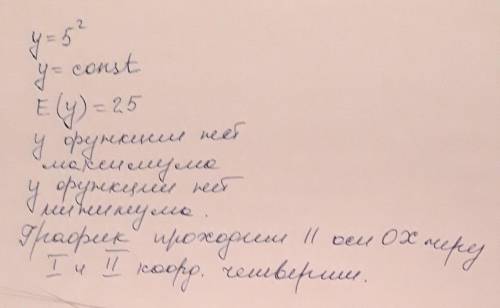 y = 5²
y = const
E(y) = 25
у функции нет
максимума
у функции нет
минимума.
График проходит || оси OX через
I и II коорд. четверти.